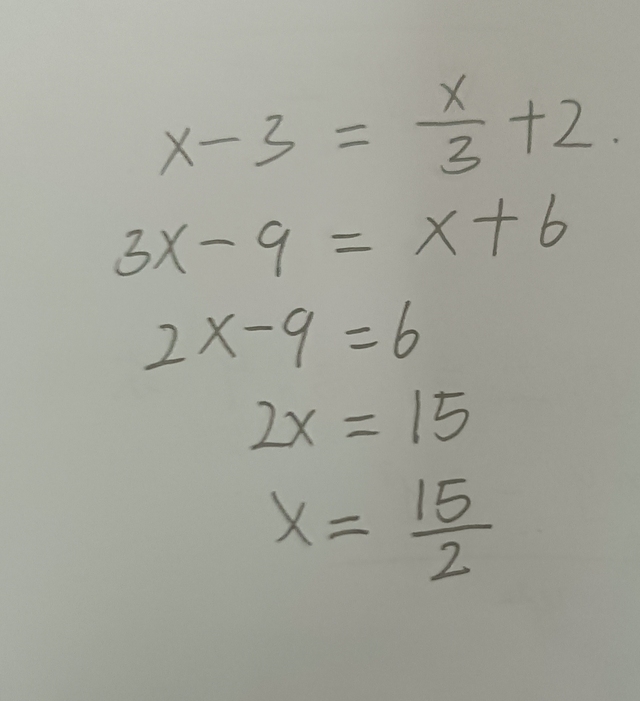 x - 3 = x/3 + 2.
3x - 9 = x + 6
2x - 9 = 6
2x = 15
x = 15/2